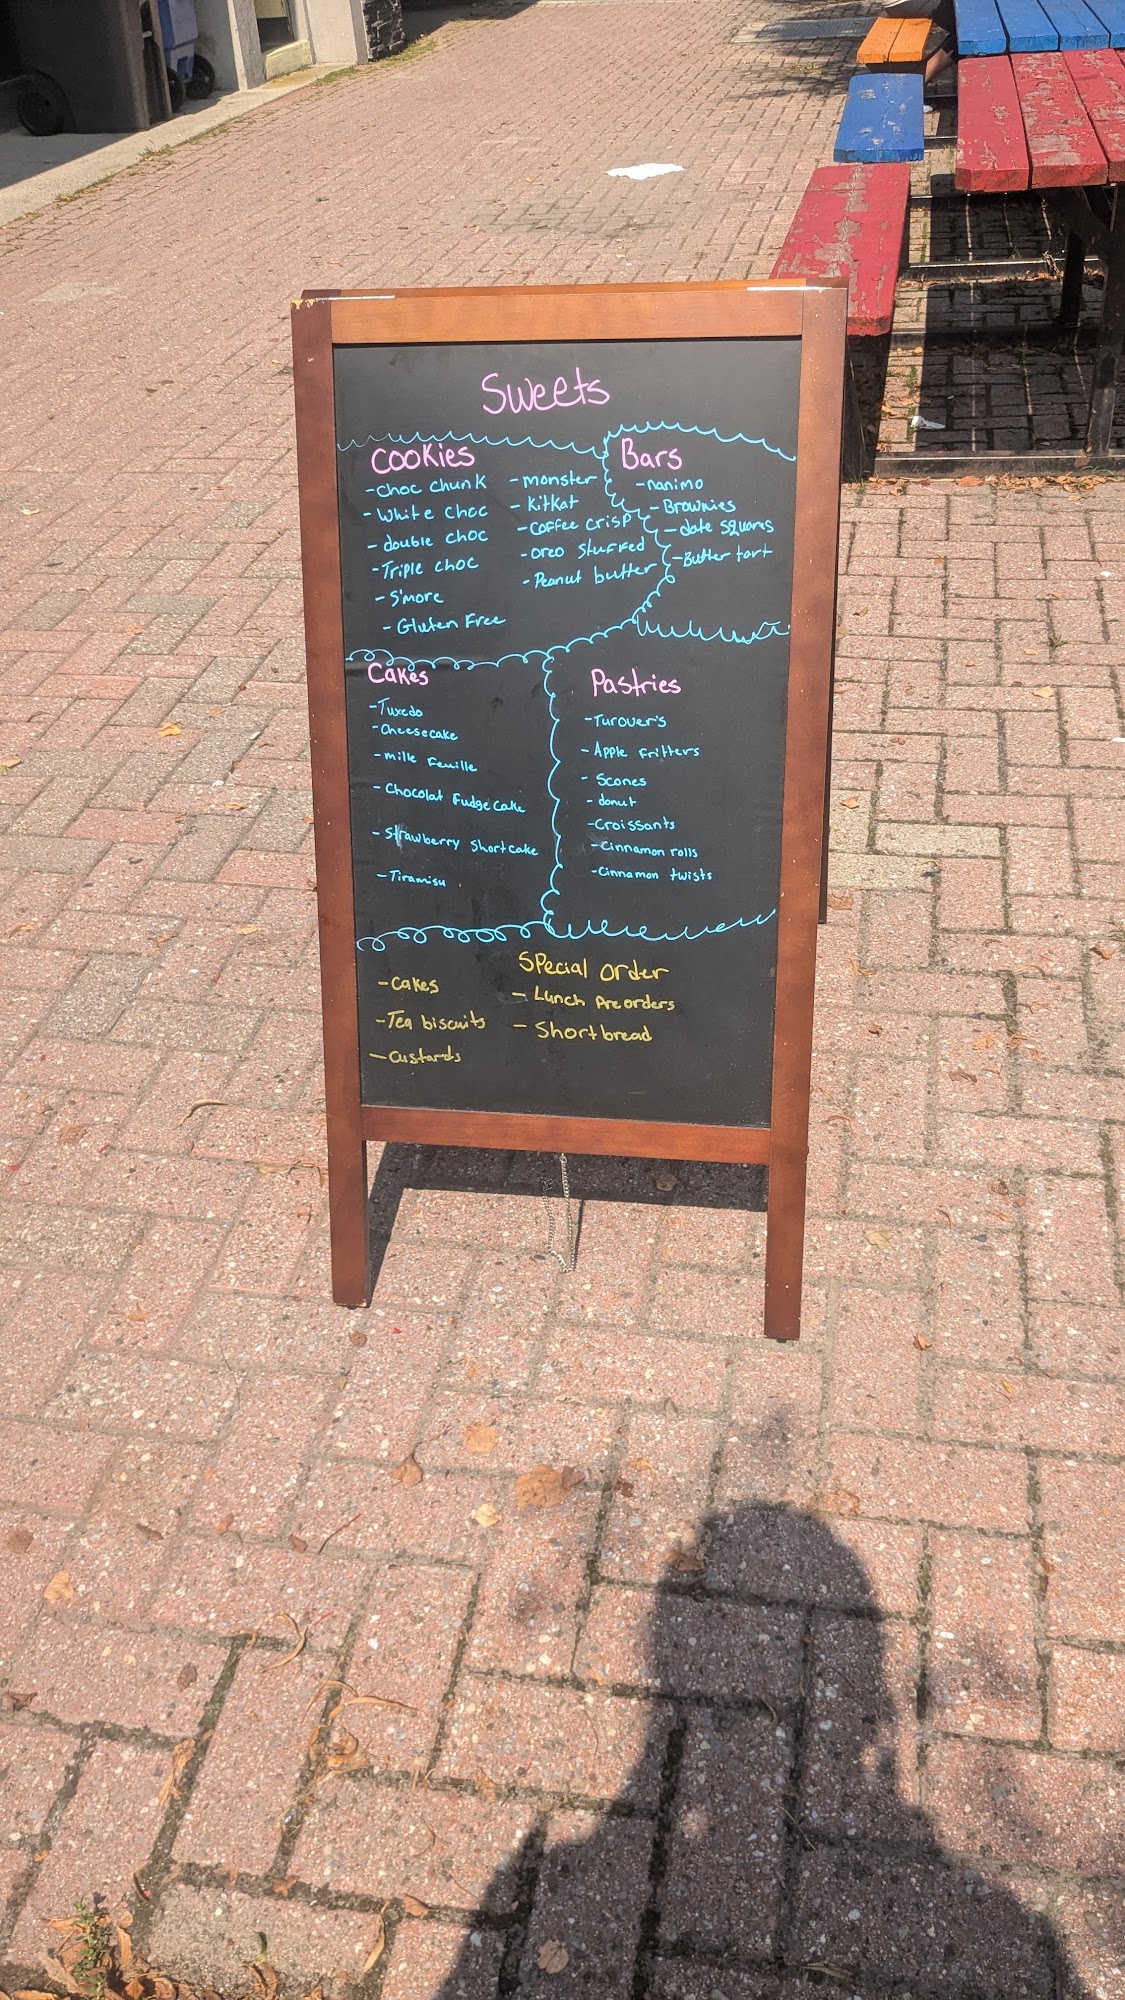 Sweets
Cookies
- choc chunk
- White choc
- double choc
- Triple choc
- S'more
- Gluten Free
- monster
- KitKat
- Coffee crisp
- oreo stuffed
- Peanut butter
Bars
- nanimo
- Brownies
- date squares
- Butter tart
Cakes
- Tuxedo
- Cheesecake
- mille feuille
- Chocolat Fudge cake
- Strawberry Shortcake
- Tiramisu
Pastries
- Turover's
- Apple Fritters
- Scones
- donut
- Croissants
- Cinnamon rolls
- Cinnamon twists
Special order
- Cakes
- Tea biscuits
- Custards
- Lunch Preorders
- Shortbread